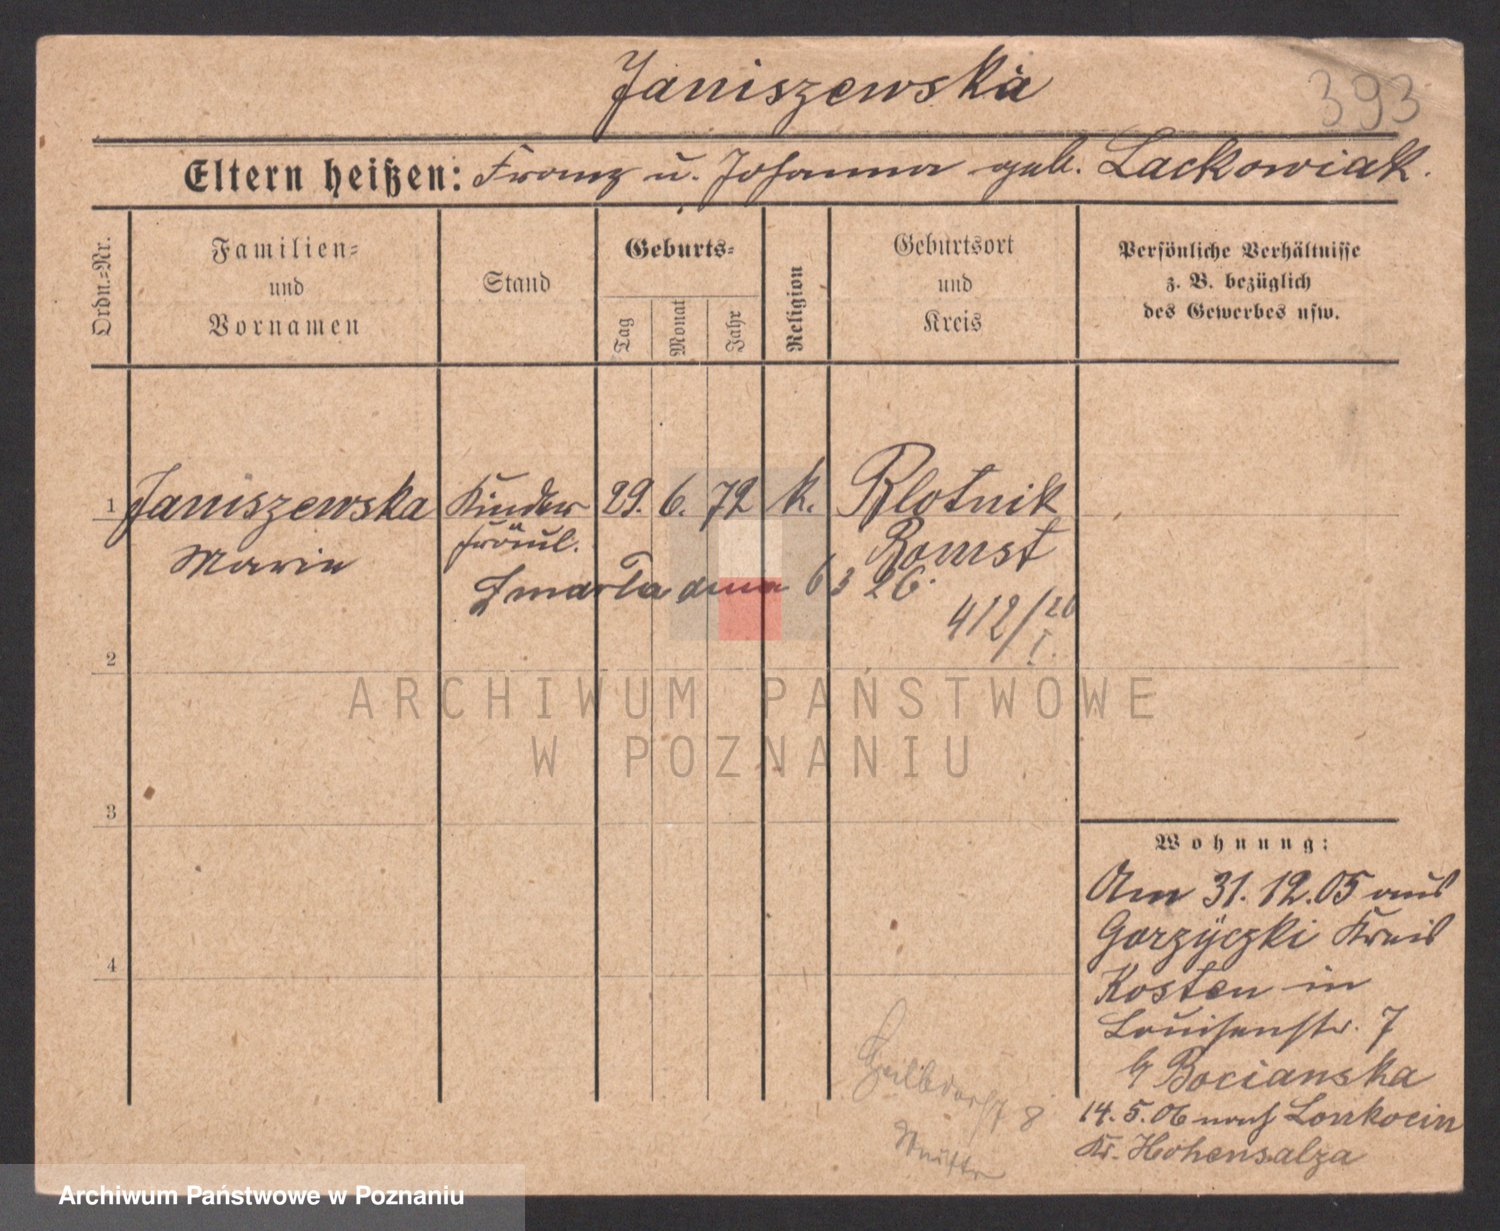 Janiszewska
393
Eltern heißen: Franz u. Johanna geb. Lackowiak.
Ordn.-Nr.
Familien-
und
Vornamen
Stand
Geburts-
Tag
Monat
Jahr
Religion
Geburtsort
und
Kreis
Persönliche Verhältnisse
z. B. bezüglich
des Gewerbes usw.
1 Janiszewska Kinder 29. 6. 72 k. Blotnik
Marie fräul. Bomst
Zmarła dnia 6 3 26.
412/26
I.
2
ARCHIWUM PAŃSTWOWE
W POZNANIU
3
4
Wohnung:
Am 31.12.05 aus
Gorzyczki Kreis
Kosten in
Louisenstr. 7
b/ Bocianska
14.5.06 nach Lonkocin
Kr. Hohensalza
8
Mutter
Archiwum Państwowe w Poznaniu